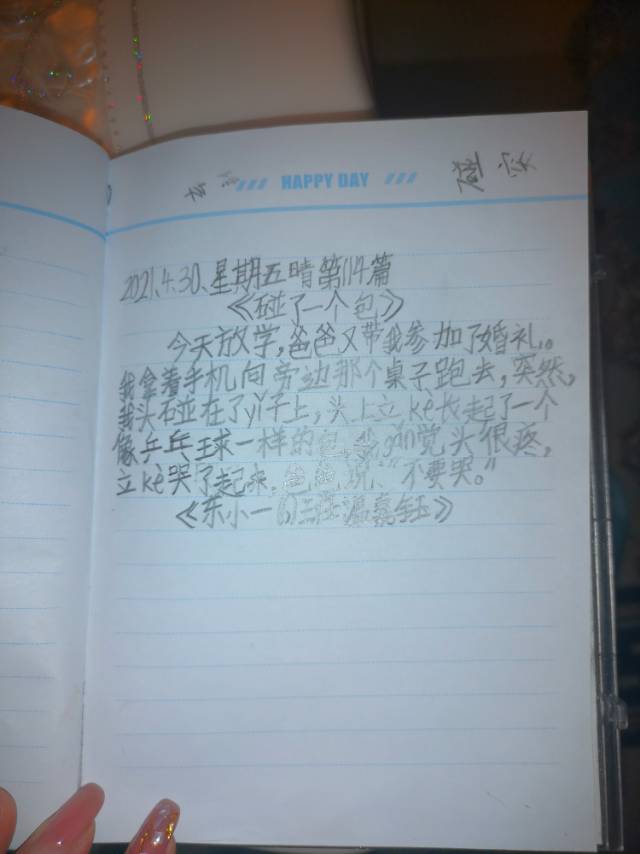 HAPPY DAY
碰 突
2021.4.30.星期五晴第114篇
《碰了一个包》
今天放学,爸爸又带我参加了婚礼。
我拿着手机向旁边那个桌子跑去,突然,
我头碰在了yǐ子上,头上立kè长起了一个
像乒乓球一样的包,我gǎn觉头很疼,
立kè哭了起来,爸爸说:“不要哭。”
《东小一(6)班温嘉钰》